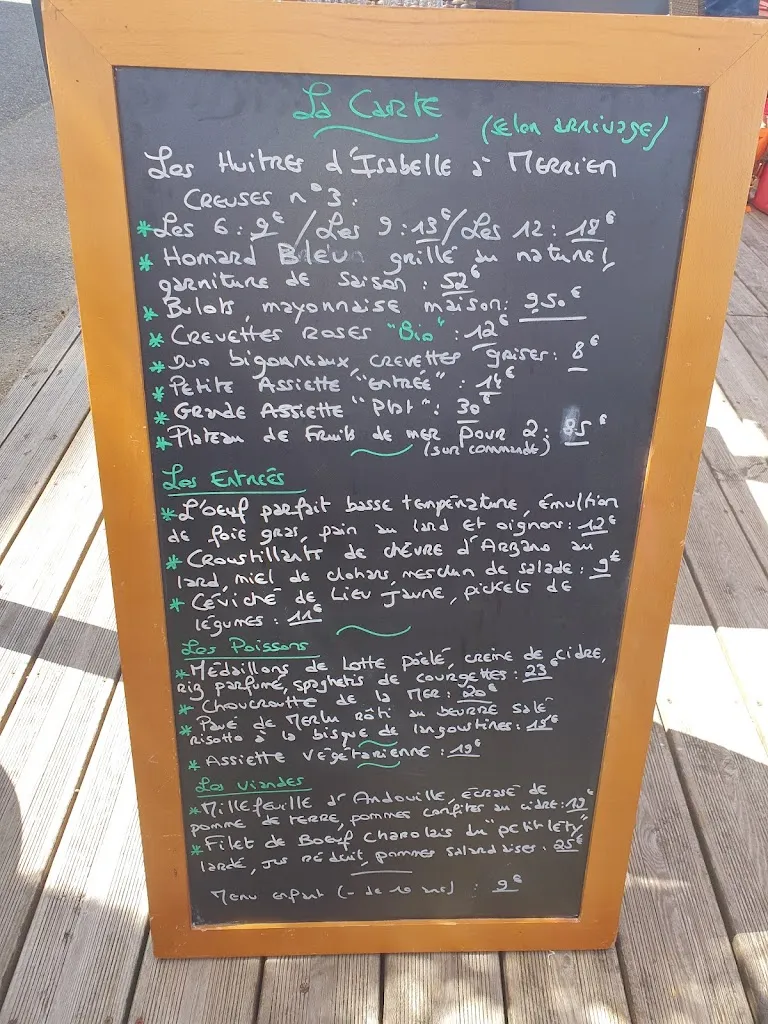 La Carte
(selon arrivage)
Les Huîtres d'Isabelle à Merrien
Creuses n°3 :
*Les 6 : 9€ / Les 9 : 13€ / Les 12 : 18€
* Homard Bleu grillé au naturel,
garniture de saison : 52€
* Bulots, mayonnaise maison : 9.50€
* Crevettes roses "Bio" : 12€
* Duo bigorneaux, crevettes grises : 8€
* Petite Assiette "entrée" : 14€
* Grande Assiette "Plat" : 30€
* Plateau de Fruits de mer pour 2 : 85€
(sur commande)
Les Entrées
*L'oeuf parfait basse température, émultion
de foie gras, pain au lard et oignons : 12€
* Croustillants de chèvre d'Arzano au
lard, miel de clohars, mesclun de salade : 9€
* Céviché de Lieu Jaune, pickels de
légumes : 11€
Les Poissons
*Médaillons de Lotte poêlé, crème de cidre,
riz parfumé, spaghetis de courgettes : 23€
* Choucroutte de la Mer : 20€
* Pavé de Merlu rôti au beurre salé
risotto à la bisque de langoustines : 19€
* Assiette végétarienne : 19€
Les viandes
*Millefeuille d'Andouille, écrasé de
pomme de terre, pommes confites au cidre : 19€
*Filet de Boeuf Charolais du "petit léty"
lardé, jus réduit, pommes salardaises : 25€
Menu enfant (- de 10 ans) : 9€